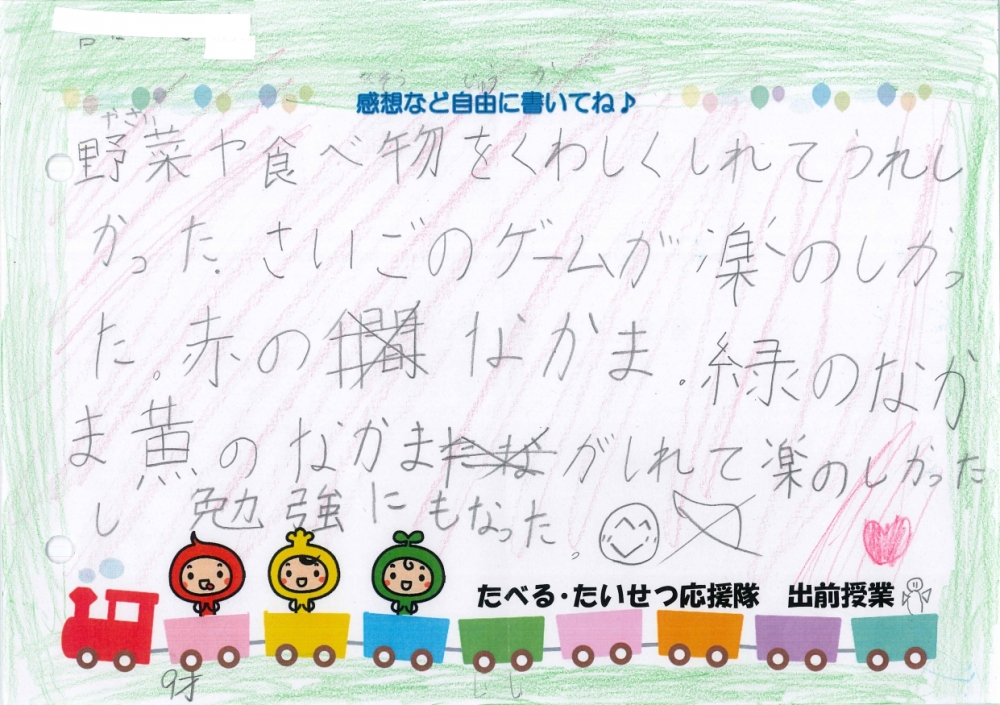 かんそう じゆう か
感想など自由に書いてね♪
やさい
野菜や食べ物をくわしくしれてうれし
かった。さいごのゲームが楽のしかっ
た。赤のなかま。緑のなか
ま黄のなかまがしれて楽のしかった
し 勉強にもなった。
たべる・たいせつ応援隊 出前授業
9才